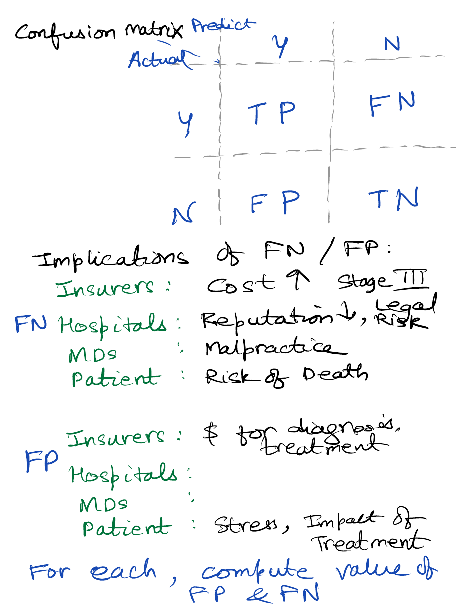 Confusion Matrix Predict
Y N
Actual
Y TP FN
N FP TN
Implications of FN / FP:
Insurers: Cost ↑ Stage III
FN Hospitals: Reputation ↓, Legal Risk
MDs : Malpractice
Patient : Risk of Death
Insurers: $ for diagnosis, treatment
FP Hospitals:
MDs :
Patient : Stress, Impact of Treatment
For each, compute value of
FP & FN